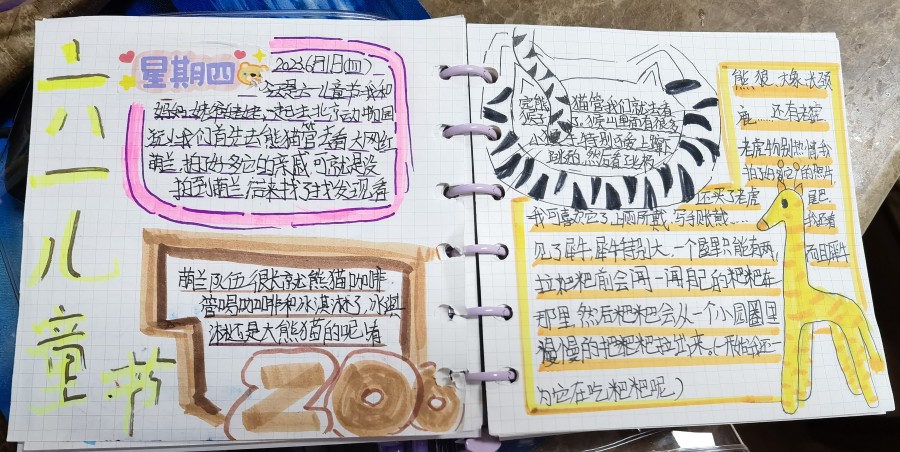 六一儿童节
星期四
2023年6月1日(四)
六一儿童节我和
妈妈一起去北京动物园
玩儿我们首先去熊猫管去看大网红
萌兰,拍了好多它的亲戚,可就是没
拍到萌兰,后来找了找发现看
萌兰队伍很长就熊猫咖啡
管喝咖啡和冰淇淋了,冰淇
淋还是大熊猫的呢,看
ZOO
完熊
猫管我们就去看
猴子
了,猴山里面有很多
小猴子特别活皮上蹿下
跳的,然后看了
熊、狼、大象、长颈
鹿……还有老虎
老虎特别热情我
拍了好多它的照片
还买了老虎
尾巴,
我可喜欢它了上厕所戴,写手账戴……
我还看
见了犀牛,犀牛特别大,一个屋里只能有两,
而且犀牛
拉粑粑前会闻一闻自己的粑粑在
那里,然后粑粑会从一个小圆圈里
慢慢的把粑粑拉出来。
为它在吃粑粑呢)